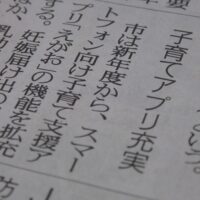 子育てアプリ充実
市は新年度から、スマー
トフォン向け子育て支援ア
プリ「えがお」の機能を拡充
する。妊娠届け出の